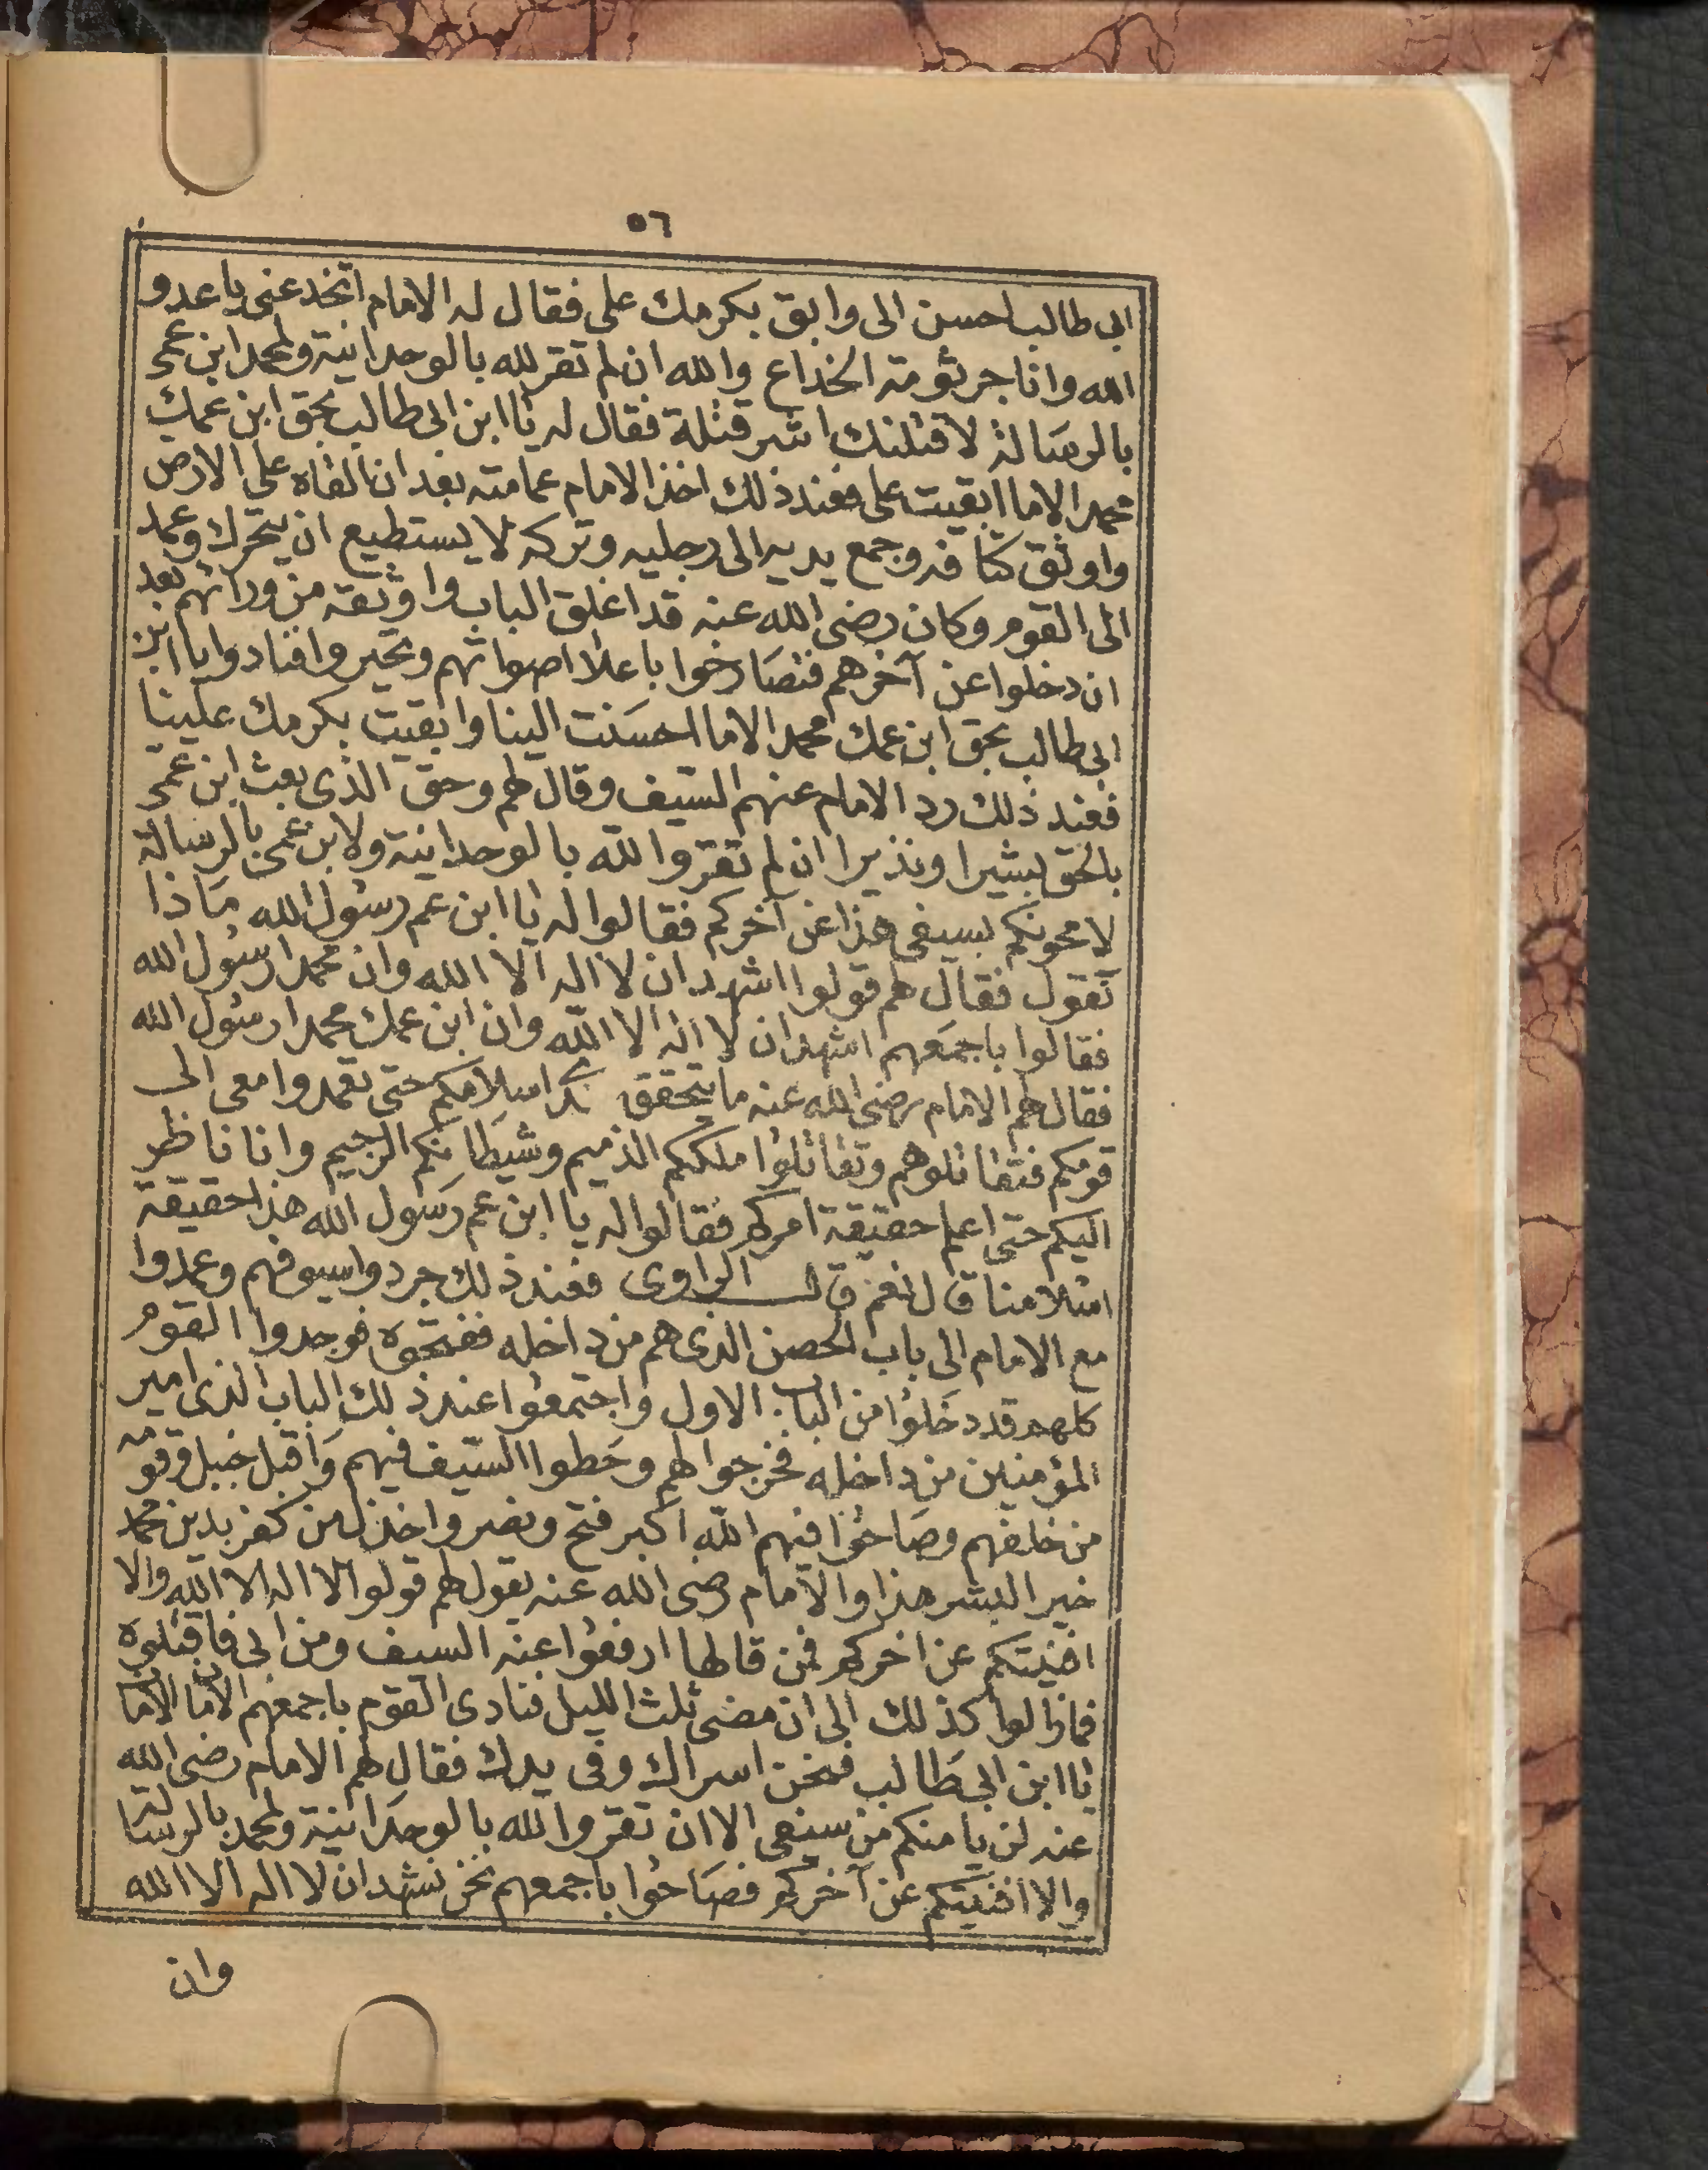 ٥٦
ابى طالب احسن الى وابق بكرمك على فقال له الامام اتخدعنى يا عدو
الله وانا جرثومة الخداع والله ان لم تقر لله بالوحدانية ولمحمد ابن عمى
بالرسالة لاقتلنك اشر قتلة فقال له يا ابن ابى طالب بحق ابن عمك
محمد الاما ابقيت على فعند ذلك اخذ الامام عمامته بعد ان القاه على الارض
واوثق كتافه وجمع يديه الى رجليه وتركه لا يستطيع ان يتحرك وعمد
الى القوم وكان رضى الله عنه قد اغلق الباب واوثقه من ورائهم بعد
ان دخلوا عن آخرهم فتصارخوا باعلا اصواتهم وتحيروا فنادوا يا ابن
ابى طالب بحق ابن عمك محمد الاما احسنت الينا وابقيت بكرمك علينا
فعند ذلك رد الامام عنهم السيف وقال لهم وحق الذى بعث ابن عمى
بالحق بشيرا ونذيرا ان لم تقروا لله بالوحدانية ولابن عمى بالرسالة
لامحونكم بسيفى هذا عن آخركم فقالوا له يا ابن عم رسول الله ماذا
تقول فقال لهم قولوا اشهد ان لا اله الا الله وان محمدا رسول الله
فقالوا باجمعهم اشهد ان لا اله الا الله وان ابن عمك محمدا رسول الله
فقال لهم الامام رضى الله عنه ما يتحقق اسلامكم حتى تعمدوا معى الى
قومكم فتقاتلوهم وتقاتلوا ملككم الذميم وشيطانكم الرجيم وانا ناظر
اليكم حتى اعلم حقيقة امركم فقالوا له يا ابن عم رسول الله هذا حقيقة
اسلامنا قال نعم قال الراوى فعند ذلك جردوا سيوفهم وعمدوا
مع الامام الى باب الحصن الذى هم من داخله ففتحوه فوجدوا القوم
كلهم قد دخلوا من الباب الاول واجتمعوا عند ذلك الباب الذى امير
المؤمنين من داخله فخرجوا لهم وحطوا السيف فيهم واقبل جنبل وقومه
من خلفهم وصاحوا فيهم الله اكبر فتح ونصر واخذل من كفر بدين محمد
خير البشر هذا والامام رضى الله عنه يقول لهم قولوا لا اله الا الله والا
افنيتكم عن اخركم فمن قالها ارفعوا عنه السيف ومن ابى فاقتلوه
فمازالوا كذلك الى ان مضى ثلث الليل فنادى القوم باجمعهم الامان الامان
يا ابن ابى طالب فنحن اسراك وفى يدك فقال لهم الامام رضى الله
عنه لن يامنكم من سيفى الا ان تقروا لله بالوحدانية ولمحمد بالرسالة
والا افنيتكم عن آخركم فصاحوا باجمعهم نحن نشهد ان لا اله الا الله
وان